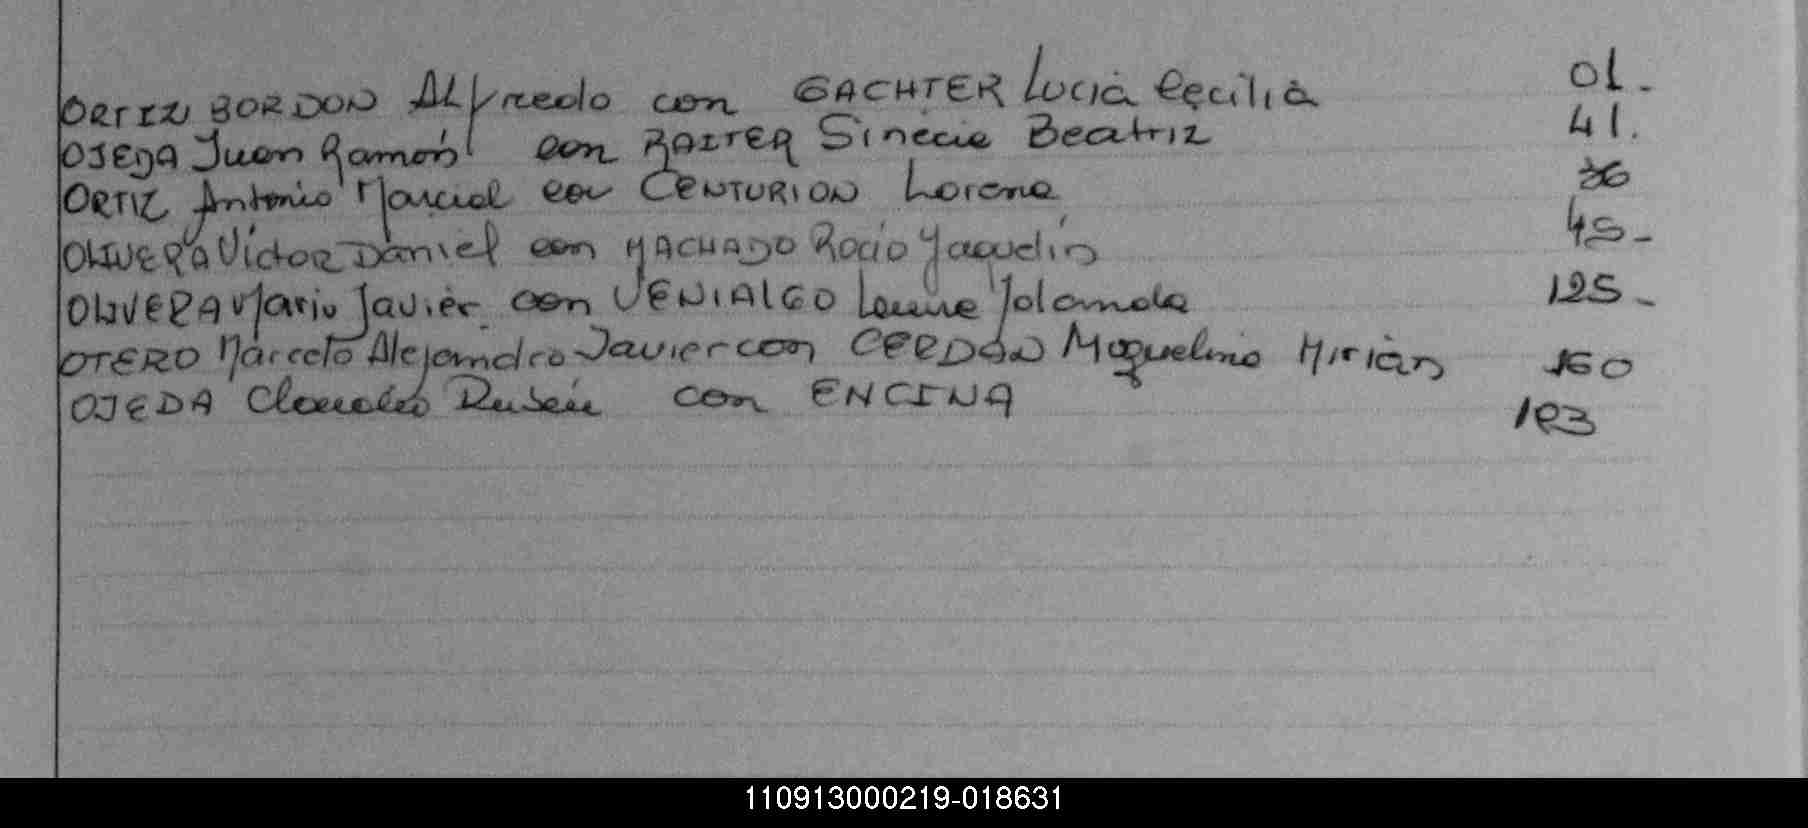 ORTIZ BORDON Alfredo con GACHTER Lucia Cecilia 01.
OJEDA Juan Ramón con RAITER Sinecie Beatriz 41.
ORTIZ Antonio Marcial con CENTURION Lorena 36
OLIVERA Víctor Daniel con MACHADO Rocio Yaquelin 45-
OLIVERA Mario Javier con VENIALGO Yolanda 125-
OTERO Marcelo Alejandro Javier con CERDAN Miriam 160
OJEDA Claudio Rubén con ENCINA
110913000219-018631